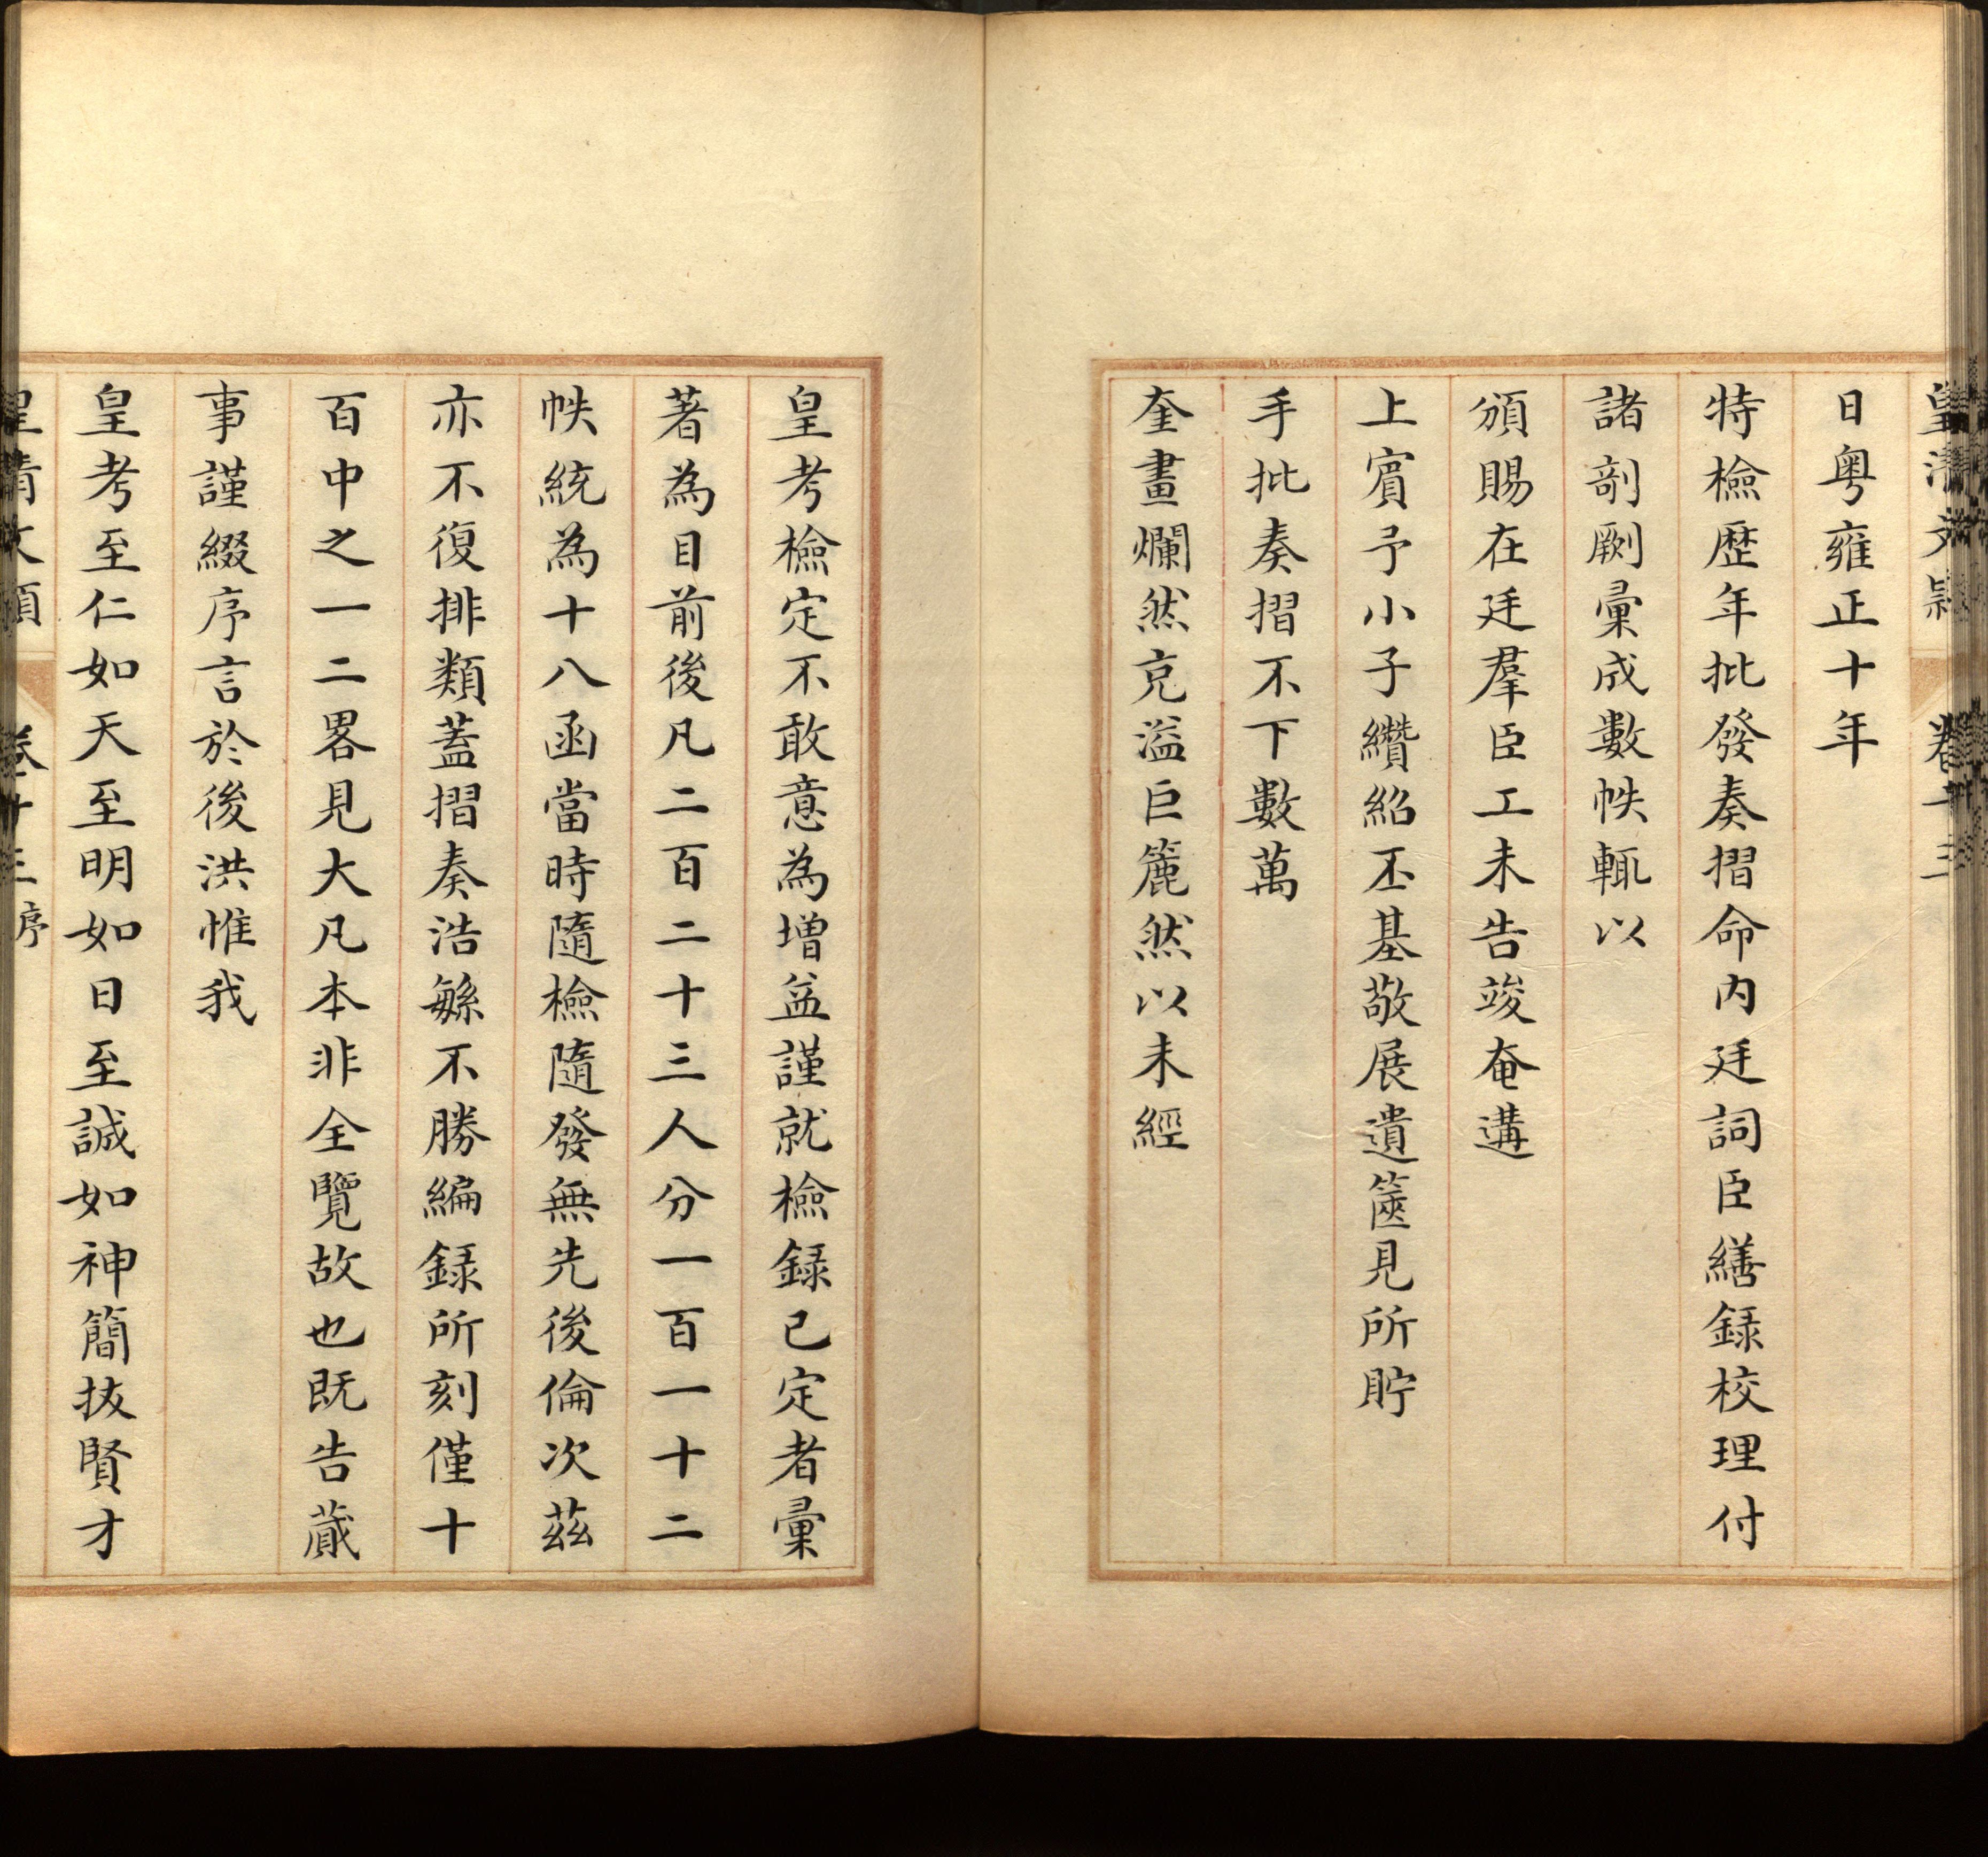 皇清文穎 卷十三
日粵雍正十年
特檢歷年批發奏摺命內廷詞臣繕録校理付
諸剞劂彙成數帙輒以
頒賜在廷羣臣工未告竣奄遘
上賔予小子纘紹丕基敬展遺篋見所貯
手批奏摺不下數萬
奎畫爛然充溢巨簏然以未經
皇考檢定不敢意為增益謹就檢録已定者彙
著為目前後凡二百二十三人分一百一十二
帙統為十八函當時隨檢隨發無先後倫次茲
亦不復排類蓋摺奏浩繁不勝編録所刻僅十
百中之一二畧見大凡本非全覽故也既告蕆
事謹綴序言於後洪惟我
皇考至仁如天至明如日至誠如神簡拔賢才
皇清文穎 卷十三 序